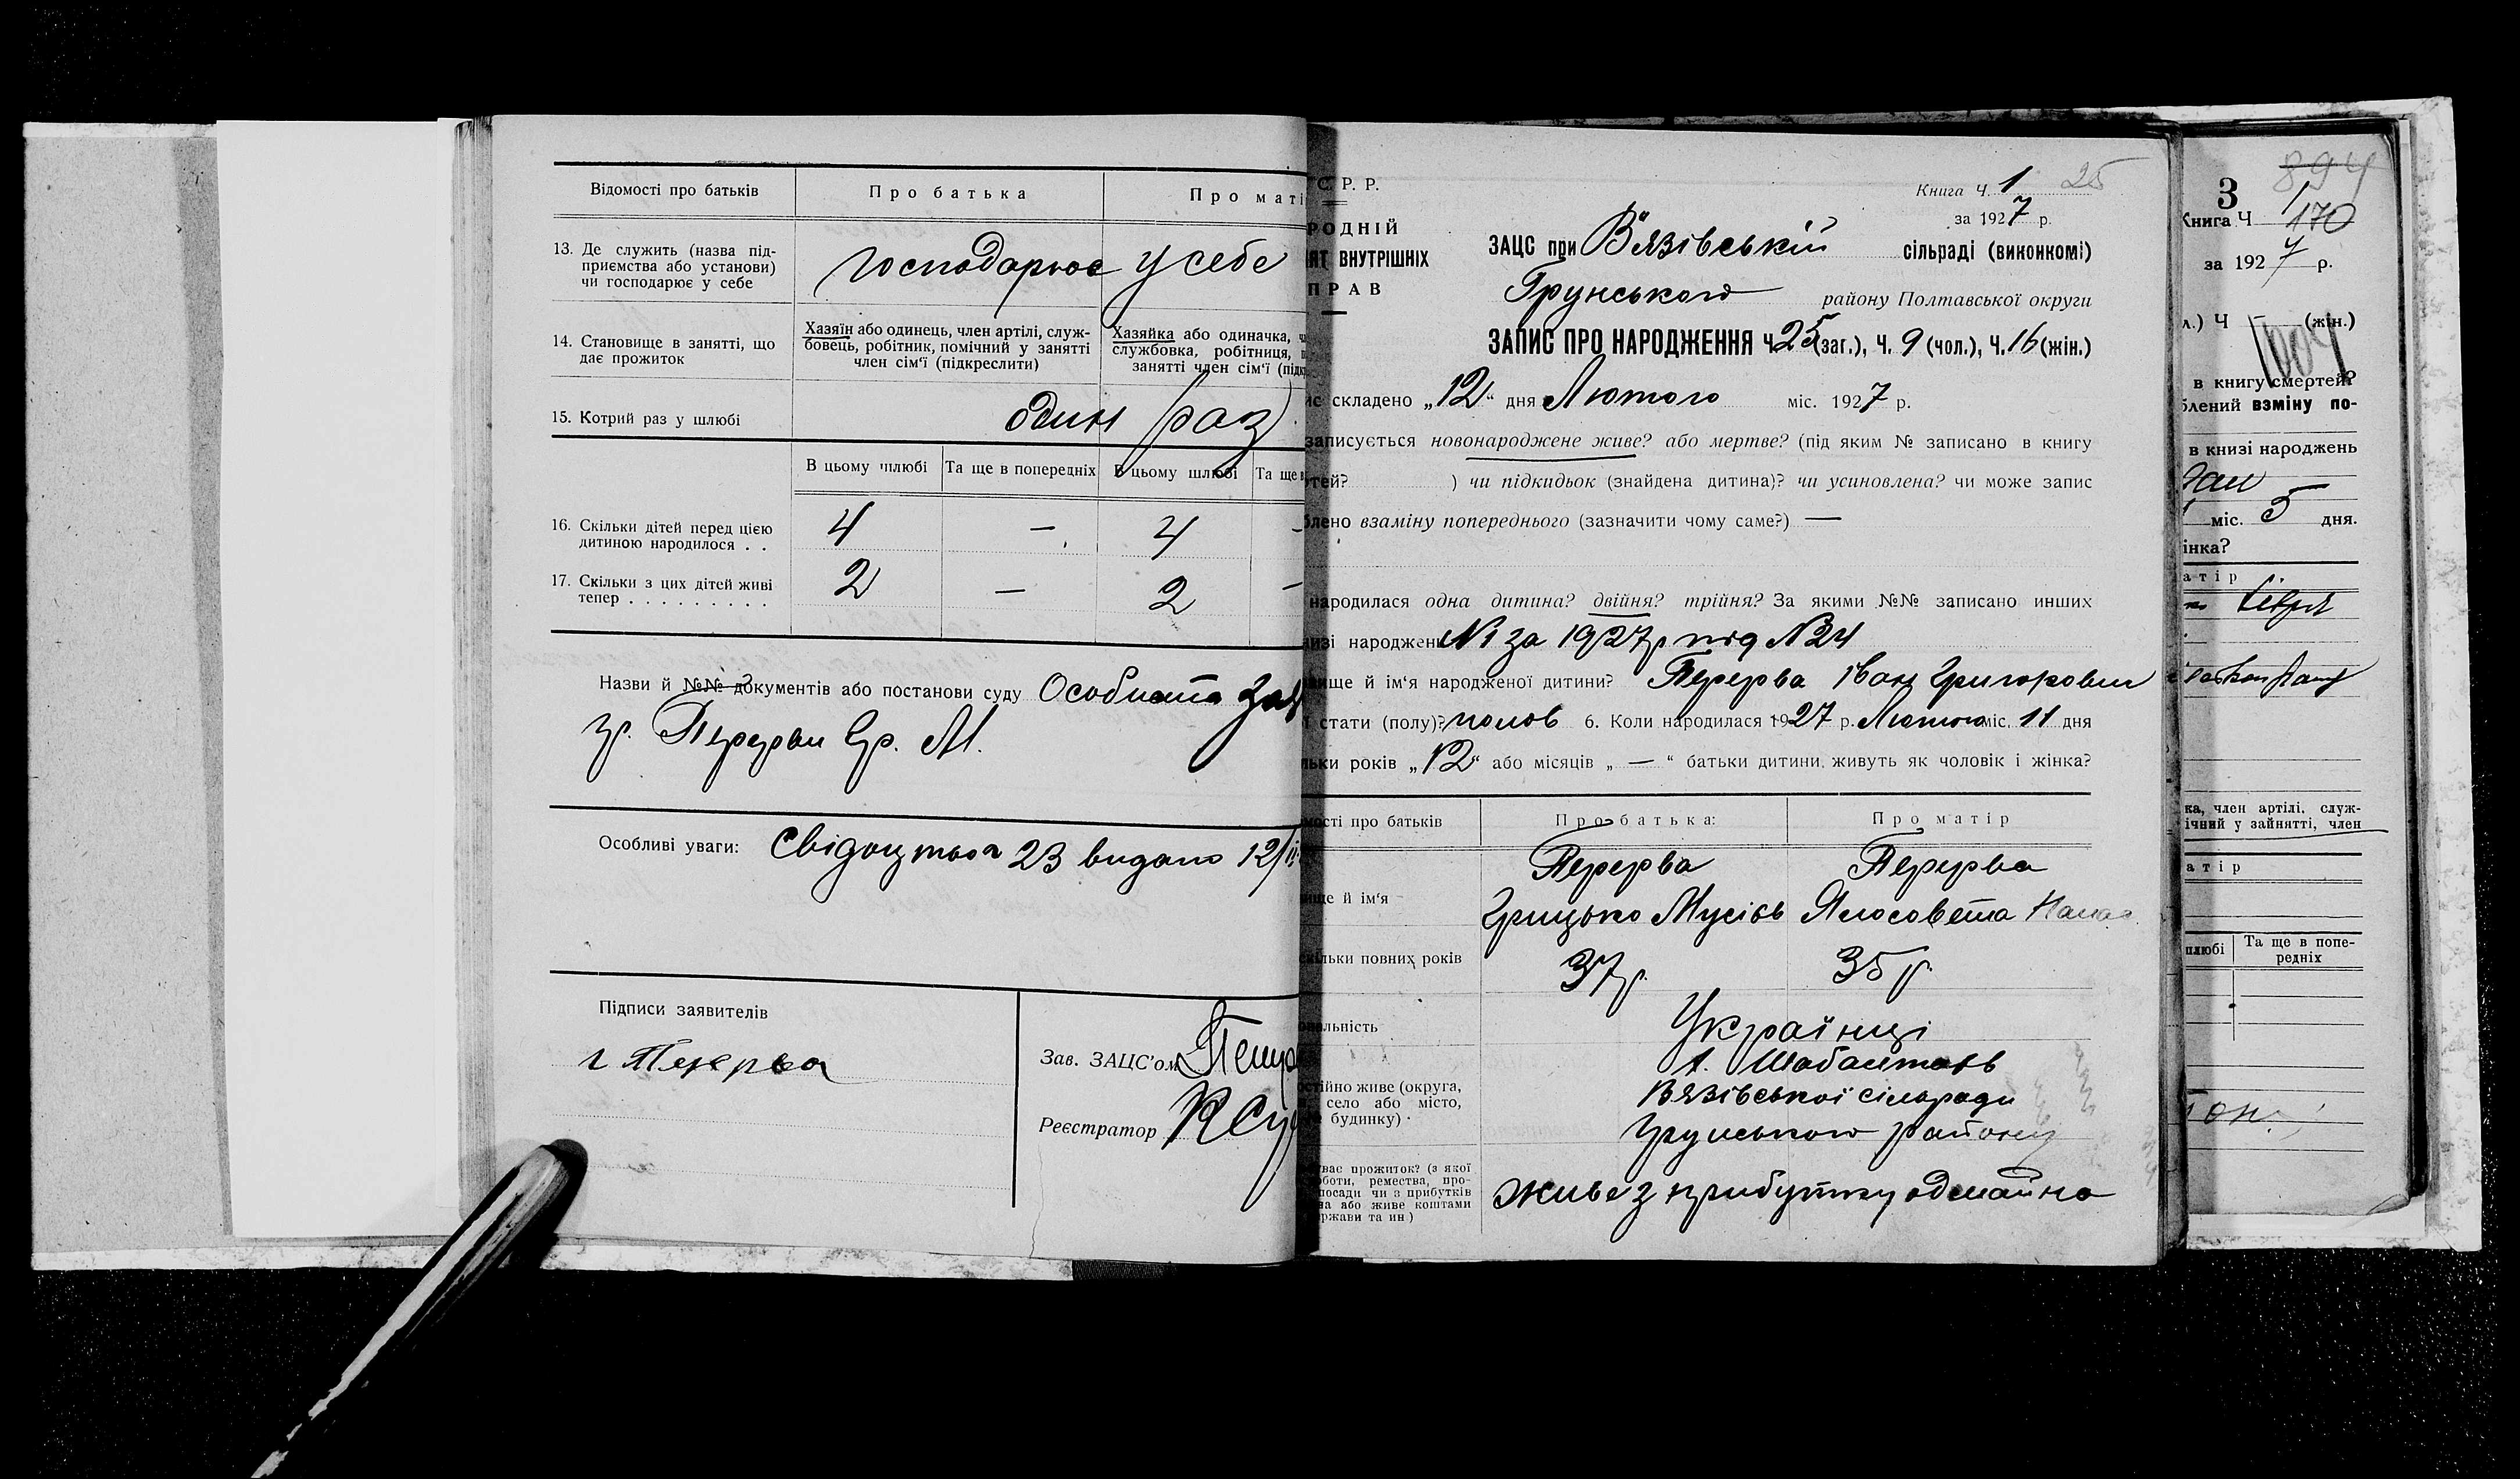 Відомості про батьків
Про батька
Про маті
13. Де служить (назва під-
приємства або установи)
чи господарює у себе
господарює у себе
14. Становище в занятті, що
дає прожиток
Хазяїн або одинець, член артілі, служ-
бовець, робітник, помічний у занятті
член сім'ї (підкреслити)
Хазяйка або одиначка, ч
службовка, робітниця, п
занятті член сім'ї (підк
15. Котрий раз у шлюбі
один раз
В цьому шлюбі
Та ще в попередніх
В цьому шлюбі
Та ще в
16. Скільки дітей перед цією
дитиною народилося . .
4 — 4 -
17. Скільки з цих дітей живі
тепер . . . . . . . . .
2 — 2 —
Назви й №№ документів або постанови суду Особиста зая
гр. Перерви Гр. М.
Особливі уваги: Свідоцтво 23 видано 12/II
Підписи заявителів
г Перерва
Зав. ЗАЦС'ом
Реєстратор
С. Р. Р.
РОДНІЙ
ЯТ ВНУТРІШНІХ
ПРАВ
Книга Ч. 1 25
за 1927 р.
ЗАЦС при Вязівській сільраді (виконкомі)
Грунського району Полтавської округи
ЗАПИС ПРО НАРОДЖЕННЯ Ч. 25 (заг.), Ч. 9 (чол.), Ч. 16 (жін.)
ис складено „12" дня Лютого міс. 1927 р.
записується новонароджене живе? або мертве? (під яким № записано в книгу
тей? ) чи підкидьок (знайдена дитина)? чи усиновлена? чи може запис
блено взаміну попереднього (зазначити чому саме?) —
народилася одна дитина? двійня? трійня? За якими №№ записано инших
изі народжень №1 за 1927 р під №24
вище й ім'я народженої дитини? Перерва Іван Григорович
ї стати (полу)? чолов 6. Коли народилася 1927 р. Лютого міс. 11 дня
льки років „12" або місяців „ — " батьки дитини живуть як чоловік і жінка?
мості про батьків
Про батька:
Про матір
вище й ім'я
Перерва
Грицько Мусієв
Перерва
Ялосовета Панас
скільки повних років
37 р.
35 р.
нальність
Українці
остійно живе (округа,
село або місто,
будинку)
Вязівської сільради
Грунського району
уває прожиток? (з якої
боти, ремества, про-
посади чи з прибутків
на або живе коштами
ржави та ин)
живе з прибутку од майна
894
3
Книга Ч 1
170
за 1927 р.
л.) Ч — (жін.)
1004
в книгу смертей?
блений взміну по-
в книзі народжень
міс. 5 дня.
інка?
атір
ка, член артілі, служ-
ічний у зайнятті, член
атір
шлюбі
Та ще в попе-
редніх